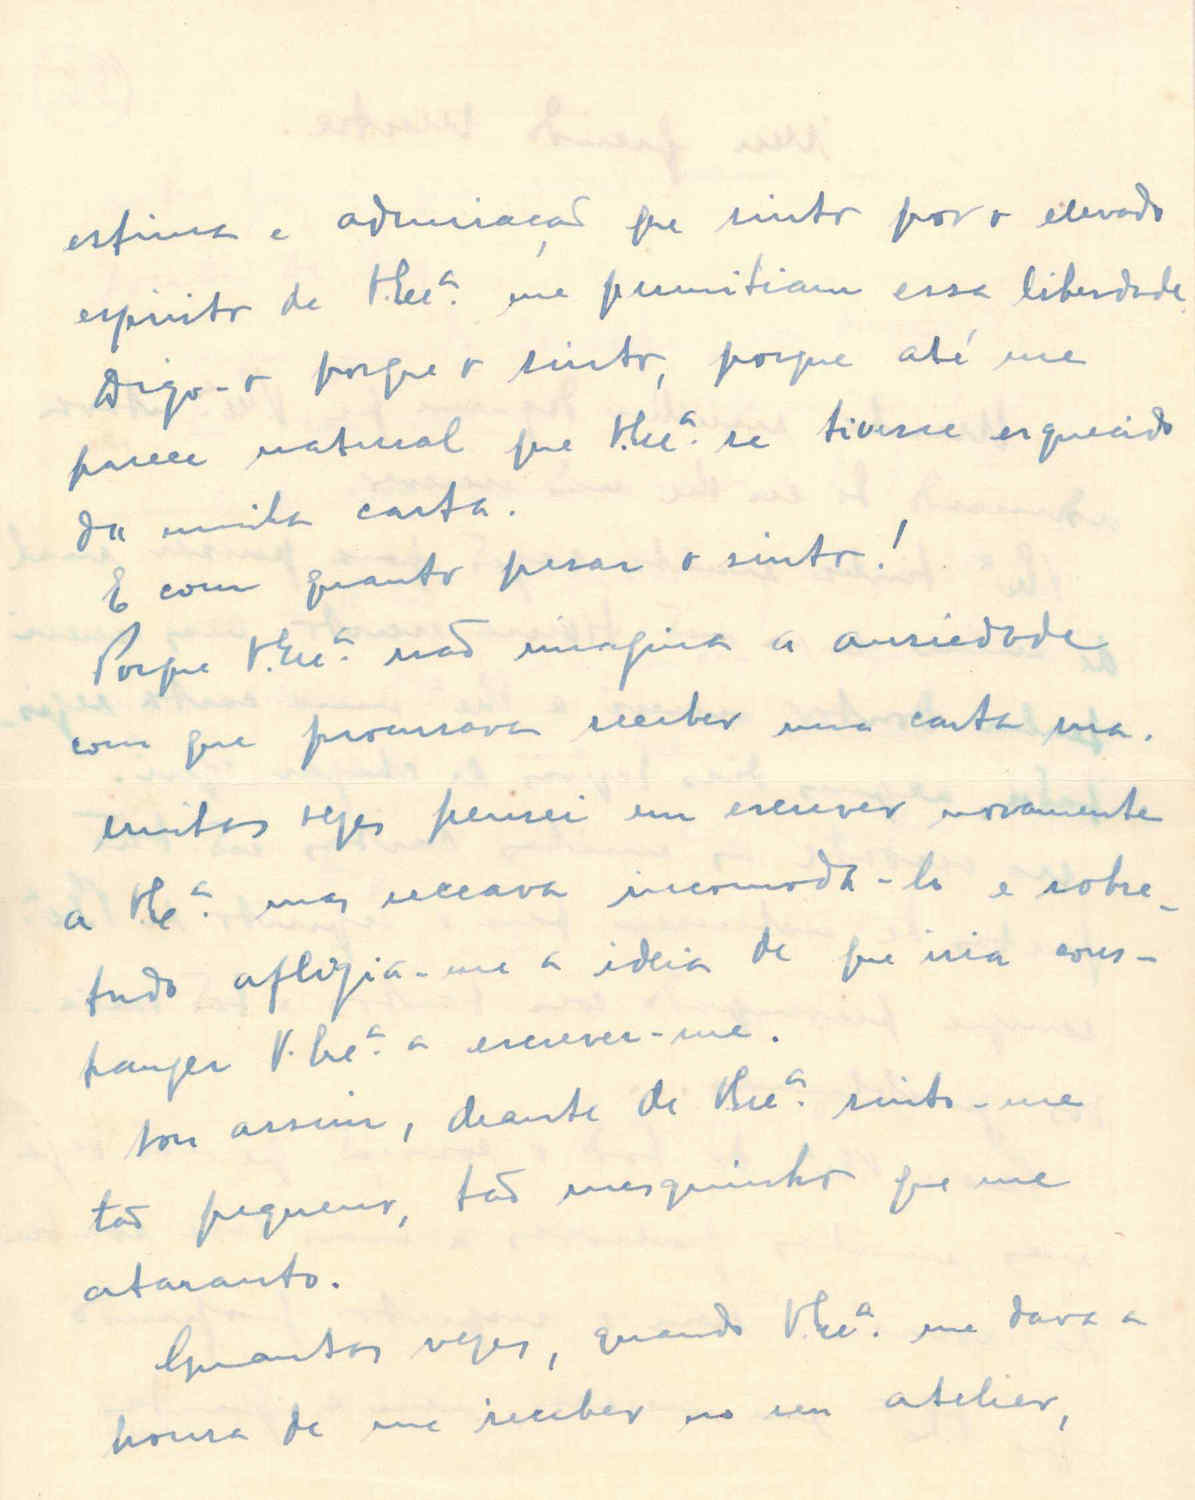 estima e admiração que sinto por o elevado
espirito de V. Exª. me permitiam essa liberdade.
Digo-o porque o sinto, porque até me
parece natural que V. Exª. se tivesse esquecido
da minha carta.
E com quanto pesar o sinto!
Porque V. Exª. não imagina a ansiedade
com que procurava receber uma carta sua.
Muitas vezes pensei em escrever novamente
a V. Exª. mas receava incomodá-lo e sobre-
tudo afligia-me a ideia de que iria cons-
tranger V. Exª. a escrever-me.
Sou assim, deante de V. Exª. sinto-me
tão pequeno, tão mesquinho que me
ataranto.
Quantas vezes, quando V. Exª. me dava a
honra de me receber no seu atelier,